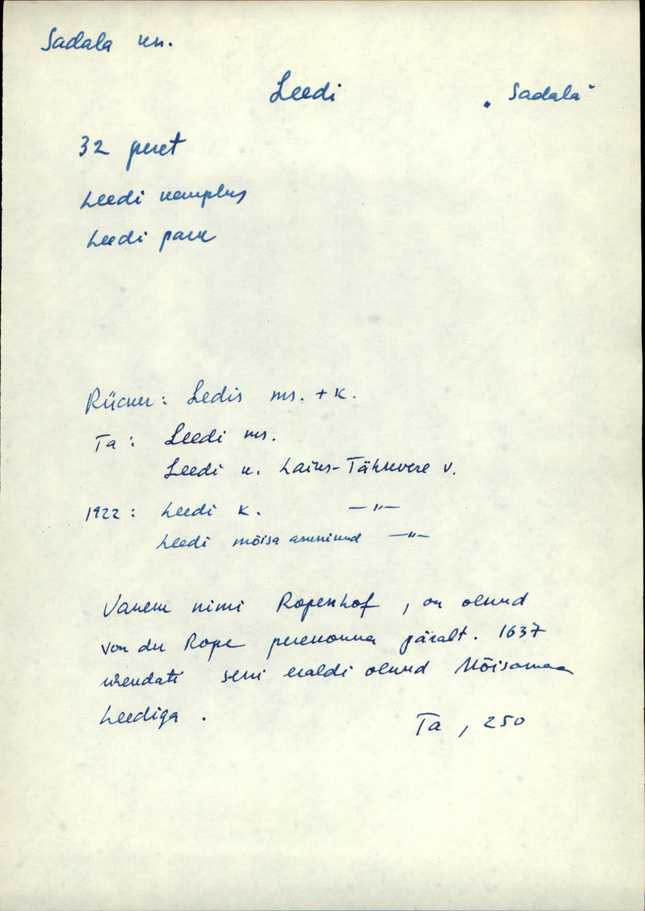 Sadala kn.
Leedi „Sadala"
32 peret
Leedi kauplus
Leedi park
Rücker: Ledis ms. + k.
Ta: Leedi ms.
Leedi k. Laius-Tähkvere v.
1922: Leedi k. —"—
Leedi mõisa asunikud —"—
Vanem nimi Ropenhof, on olnud
von der Rope perekonna päralt. 1637
ühendati seni eraldi olnud Mõisamaa
Leediga.
Ta, 250